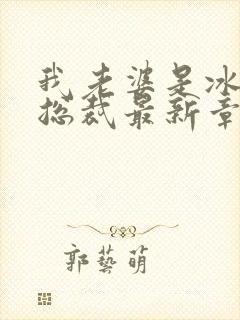 我老婆是冰
总裁最新章
郭艺萌